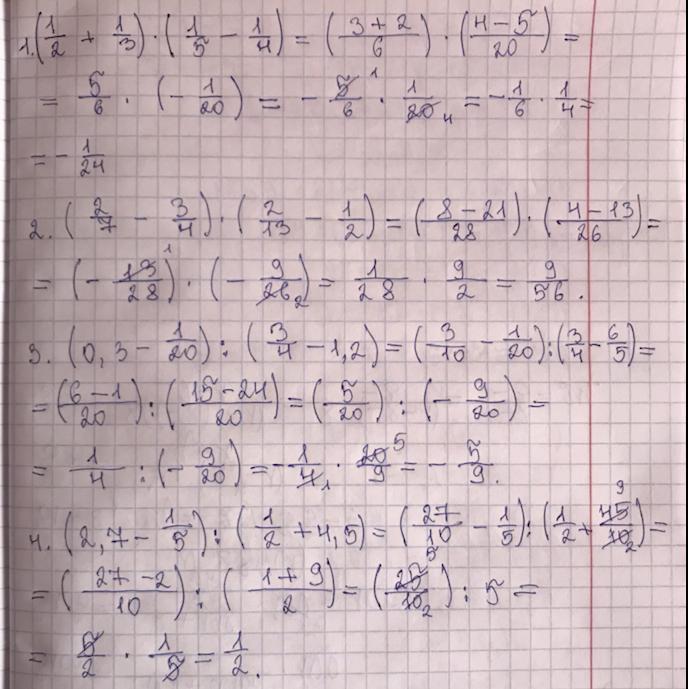 1. (1/2 + 1/3) · (1/5 − 1/4) = (3+2/6) · (4−5/20) =
= 5/6 · (− 1/20) = − 5/6 ¹ · 1/20 4 = − 1/6 · 1/4 =
= − 1/24
2. (2/7 − 3/4) · (2/13 − 1/2) = (8−21/28) · (4−13/26) =
= (− 13/28)¹ · (− 9/26 2) = 1/28 · 9/2 = 9/56.
3. (0,3 − 1/20) : (3/4 − 1,2) = (3/10 − 1/20) : (3/4 − 6/5) =
= (6−1/20) : (15−24/20) = (5/20) : (− 9/20) =
= 1/4 : (− 9/20) = − 1/4 1 · 20 5/9 = − 5/9.
4. (2,7 − 1/5) : (1/2 + 4,5) = (27/10 − 1/5) : (1/2 + 45 9/10 2) =
= (27−2/10) : (1+9/2) = (25 5/10 2) : 5 =
= 5/2 · 1/5 = 1/2.